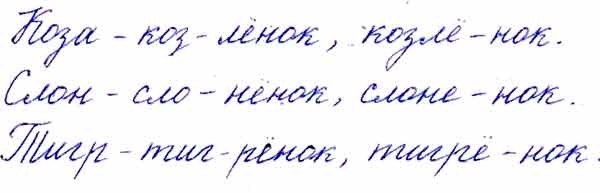 Коза - коз - лёнок, козлё - нок.
Слон - сло - нёнок, слоне - нок.
Тигр - тиг - рёнок, тигрё - нок.